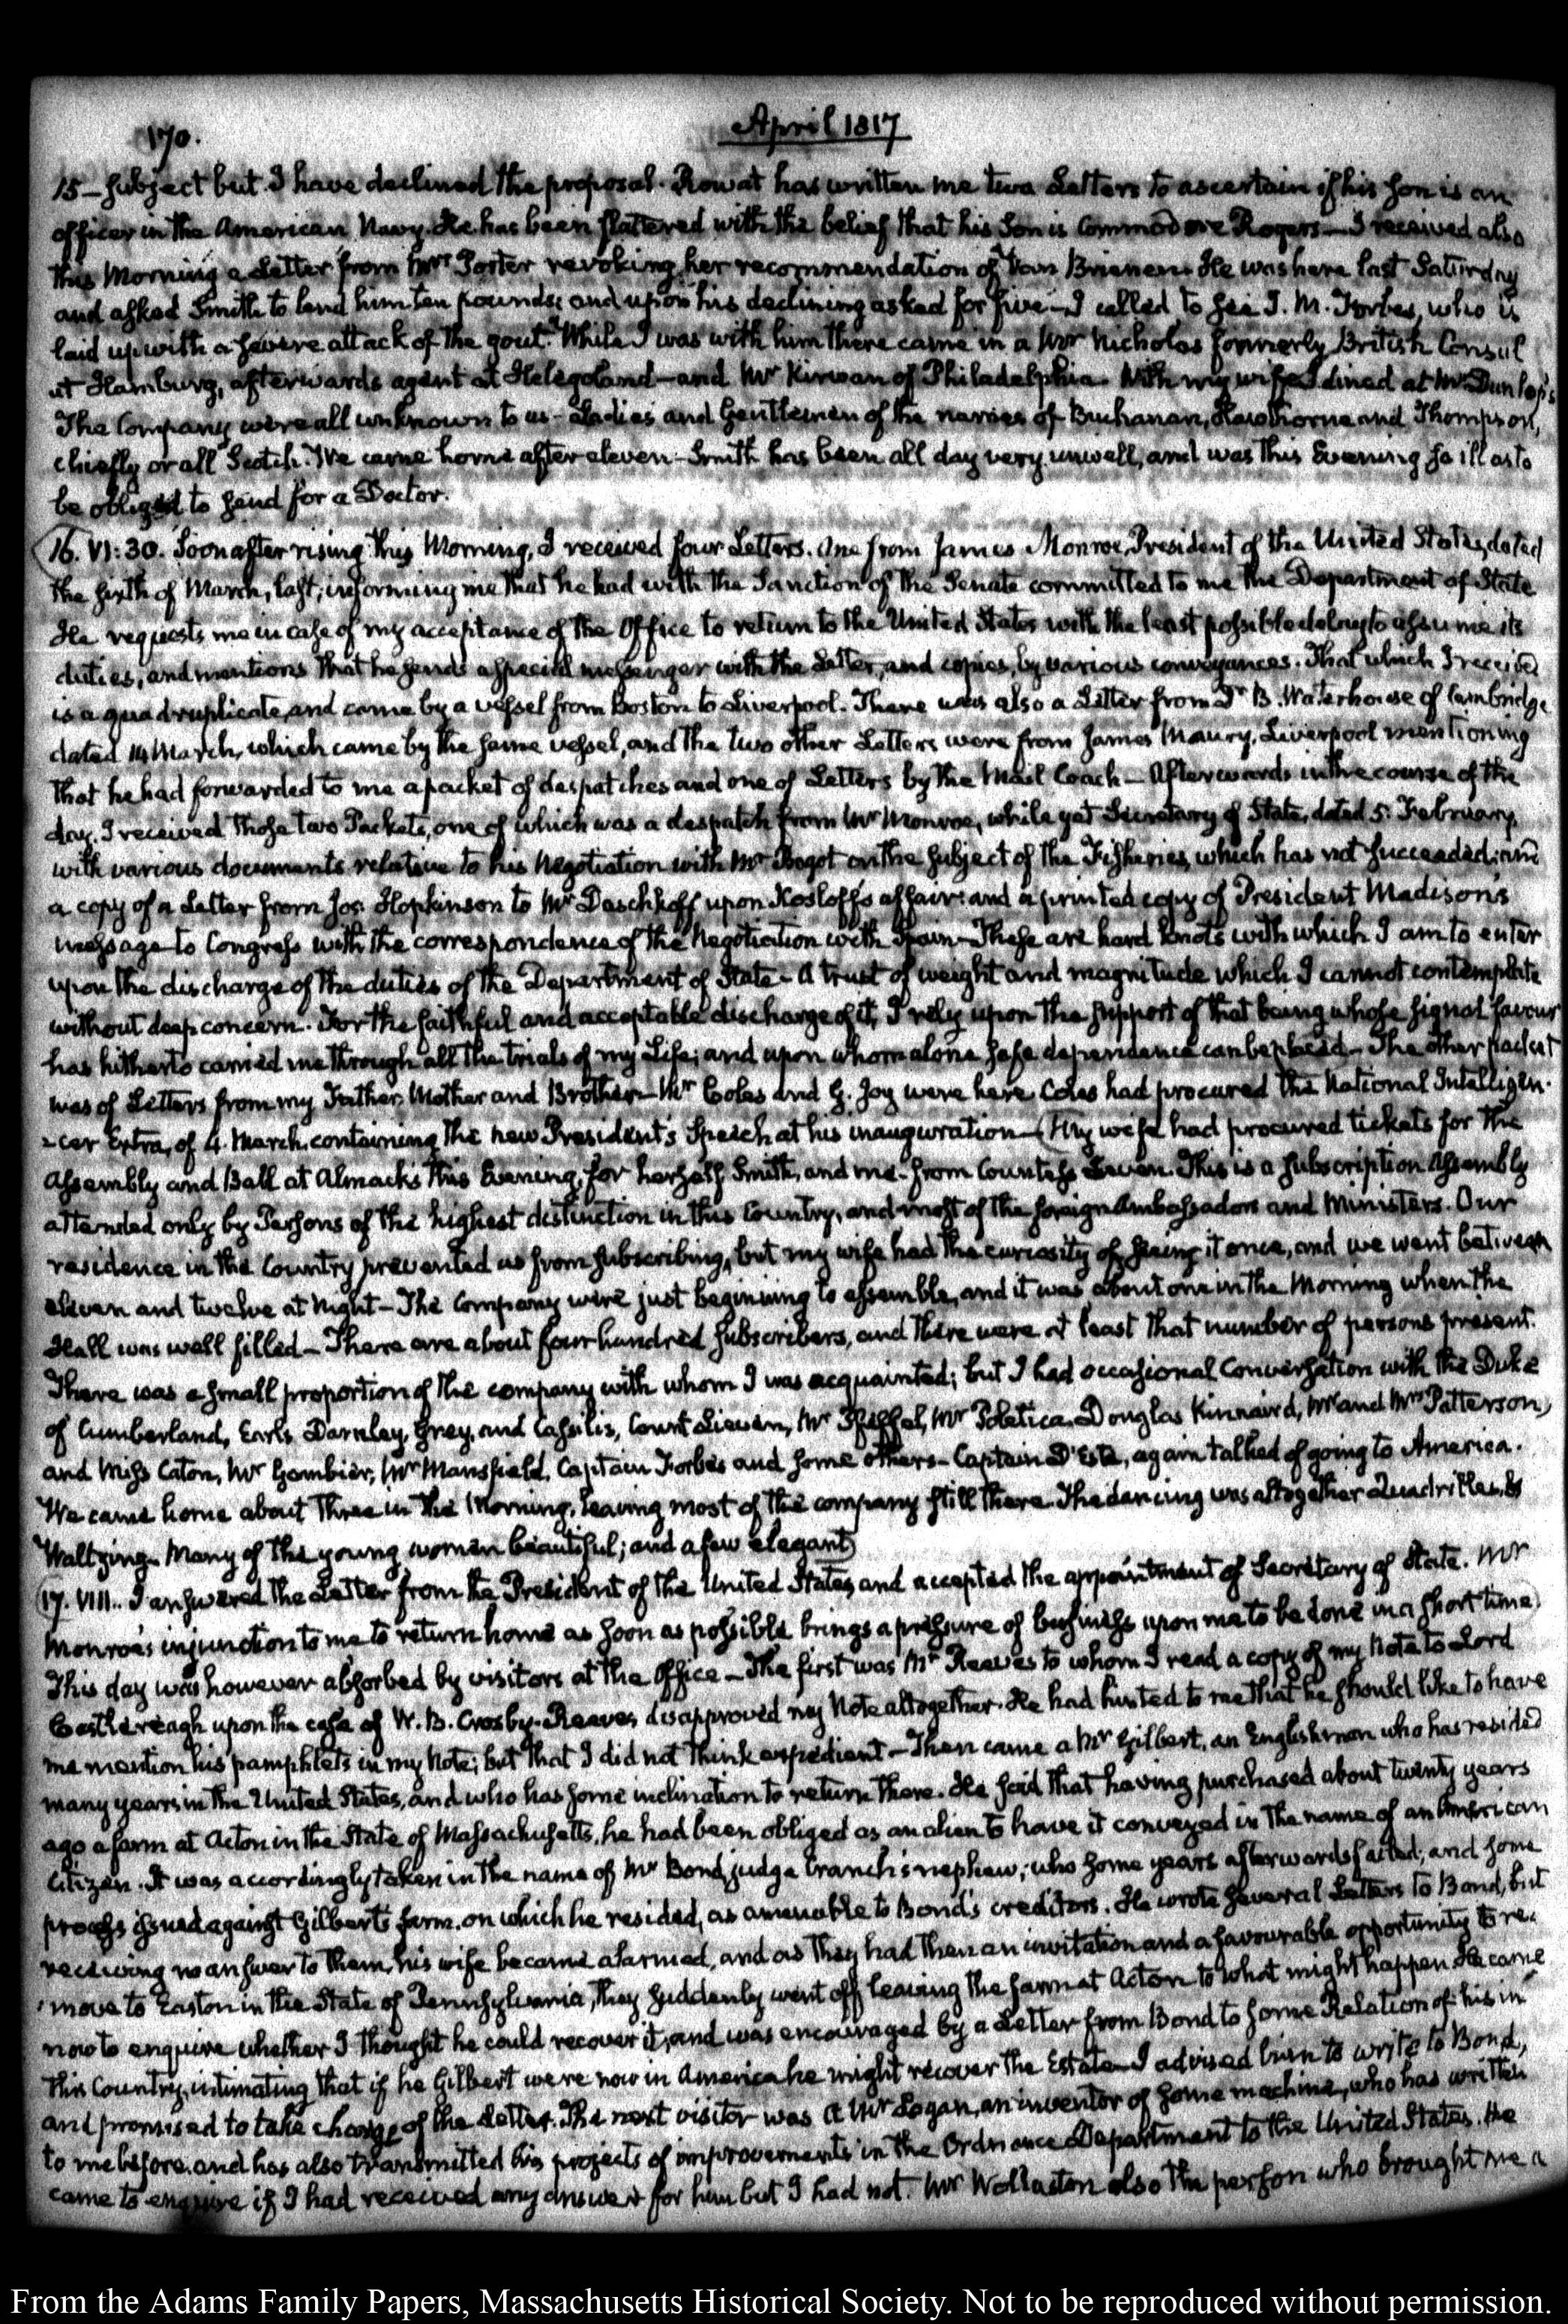 170.
April 1817
15 — subject but I have declined the proposal. Rowat has written me two Letters to ascertain if his Son is an
officer in the American Navy. He has been flattered with the belief that his Son is Commodore Rogers — I received also
this Morning a Letter from Mrs Porter revoking her recommendation of Van Brienen. He was here last Saturday
and asked Smith to lend him ten pounds; and upon his declining asked for five — I called to see J. M. Forbes, who is
laid up with a severe attack of the gout. While I was with him there came in a Mr Nicholas formerly British Consul
at Hamburg, afterwards agent at Heligoland — and Mr Kirwan of Philadelphia. With my wife I dined at Mr Dunlop's
The Company were all unknown to us — Ladies and Gentlemen of the names of Buchanan, Hawthorne and Thompson,
chiefly or all Scotch. We came home after eleven — Smith has been all day very unwell, and was this Evening so ill as to
be obliged to send for a Doctor.
16. VI:30. Soon after rising this Morning, I received four Letters. One from James Monroe, President of the United States, dated
the sixth of March, last; informing me that he had with the Sanction of the Senate committed to me the Department of State
He requests me in case of my acceptance of the Office to return to the United States with the least possible delay to assume its
duties, and mentions that he sends a special messenger with the Letter, and copies, by various conveyances. That which I received
is a quadruplicate, and came by a vessel from Boston to Liverpool. There was also a Letter from Dr B. Waterhouse of Cambridge
dated 14 March, which came by the same vessel, and the two other Letters were from James Maury, Liverpool mentioning
that he had forwarded to me a packet of despatches and one of Letters by the Mail Coach — Afterwards in the course of the
day, I received those two Packets, one of which was a despatch from Mr Monroe, while yet Secretary of State, dated 5. February,
with various documents relative to his Negotiation with Mr Bagot on the subject of the Fisheries, which has not succeeded; and
a copy of a Letter from Jos. Hopkinson to Mr Daschkoff upon Kosloff's affair: and a printed copy of President Madison's
message to Congress with the correspondence of the Negotiation with Spain — These are hard knots with which I am to enter
upon the discharge of the duties of the Department of State — A trust of weight and magnitude which I cannot contemplate
without deep concern. For the faithful and acceptable discharge of it, I rely upon the support of that being whose signal favour
has hitherto carried me through all the trials of my Life; and upon whom alone safe dependence can be placed — The other packet
was of Letters from my Father, Mother and Brother — Mr Coles and G. Joy were here. Coles had procured the National Intelligen-
-cer Extra, of 4. March, containing the new President's Speech at his inauguration — (My wife had procured tickets for the
Assembly and Ball at Almack's this Evening, for herself, Smith, and me — from Countess Lieven. This is a subscription Assembly
attended only by Persons of the highest distinction in this Country, and most of the foreign Ambassadors and Ministers. Our
residence in the Country prevented us from subscribing, but my wife had the curiosity of seeing it once, and we went between
eleven and twelve at Night — The Company were just beginning to assemble, and it was about one in the Morning when the
Hall was well filled — There are about four hundred subscribers, and there were at least that number of persons present.
There was a small proportion of the company with whom I was acquainted; but I had occasional Conversation with the Duke
of Cumberland, Earls Darnley, Grey, and Cassilis, Count Lieven, Mr Pfeffel, Mr Poletica, Douglas Kinnaird, Mr and Mrs Patterson,
and Miss Caton, Mr Gambier, Mr Mansfield, Captain Forbes and some others — Captain D'Este, again talked of going to America.
We came home about three in the Morning, leaving most of the company still there. The dancing was altogether Quadrilles, &
Waltzing. Many of the young women beautiful; and a few elegant)
17. VIII.. I answered the Letter from the President of the United States, and accepted the appointment of Secretary of State. Mr
Monroe's injunction to me to return home as soon as possible brings a pressure of business upon me to be done in a short time
This day was however absorbed by visitors at the Office — The first was Mr Reeves to whom I read a copy of my Note to Lord
Castlereagh upon the case of W. B. Crosby. Reeves disapproved my Note altogether. He had hinted to me that he should like to have
me mention his pamphlets in my Note; but that I did not think expedient — Then came a Mr Gilbert, an Englishman who has resided
many years in the United States, and who has some inclination to return there. He said that having purchased about twenty years
ago a farm at Acton in the State of Massachusetts, he had been obliged as an alien to have it conveyed in the name of an American
Citizen. It was accordingly taken in the name of Mr Bond, judge Cranch's nephew; who some years afterwards failed; and some
process issued against Gilbert's farm, on which he resided, as amenable to Bond's creditors. He wrote several Letters to Bond, but
receiving no answer to them, his wife became alarmed, and as they had then an invitation and a favourable opportunity to re-
-move to Easton in the State of Pennsylvania, they suddenly went off leaving the farm at Acton to what might happen. He came
now to enquire whether I thought he could recover it; and was encouraged by a Letter from Bond to some Relation of his in
this Country, intimating that if he Gilbert were now in America he might recover the Estate — I advised him to write to Bond,
and promised to take charge of the Letter. The next visitor was a Mr Logan, an inventor of some machine, who has written
to me before, and has also transmitted his projects of improvements in the Ordnance Department to the United States. He
came to enquire if I had received any answer for him but I had not. Mr Wollaston also the person who brought me a
From the Adams Family Papers, Massachusetts Historical Society. Not to be reproduced without permission.